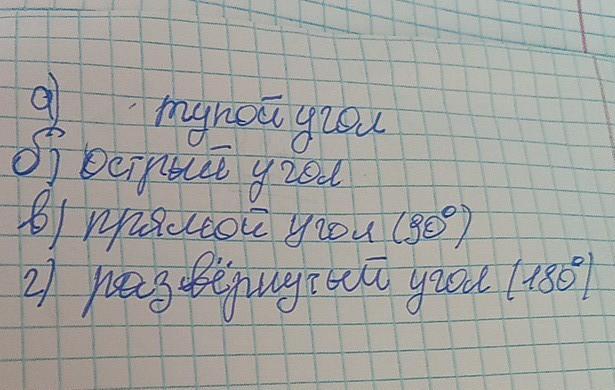 а) тупой угол
б) острый угол
в) прямой угол (90°)
г) развёрнутый угол (180°)